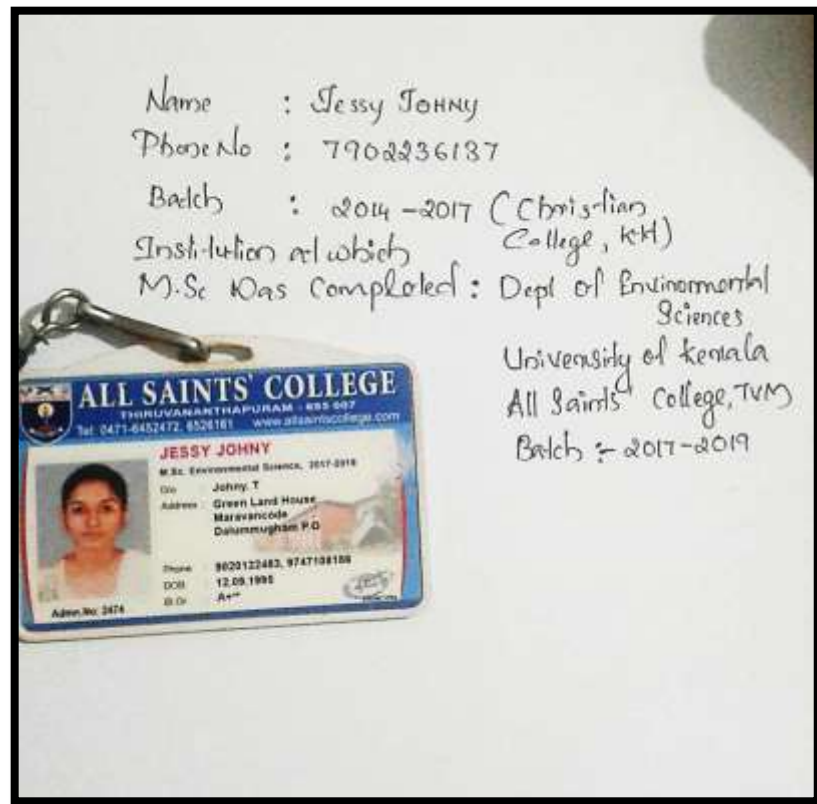 Name : Jessy Johny
Phone No : 7902236137
Batch : 2014 - 2017 (Christian
College, KK)
Institution at which
M.Sc was Completed : Dept of Environmental
Sciences
University of Kerala
All Saints' College, TVM
Batch :- 2017-2019
ALL SAINTS' COLLEGE
THIRUVANANTHAPURAM - 695 007
Tel: 0471-6452472, 6526161 www.allsaintscollege.com
JESSY JOHNY
M.Sc. Environmental Science, 2017-2019
D/o : Johny. T
Address : Green Land House
Maravancode
Dalummugham P.O
Phone : 9020122483, 9747108186
DOB : 12.09.1995
Bl.Gr : A+
Admn.No: 2474